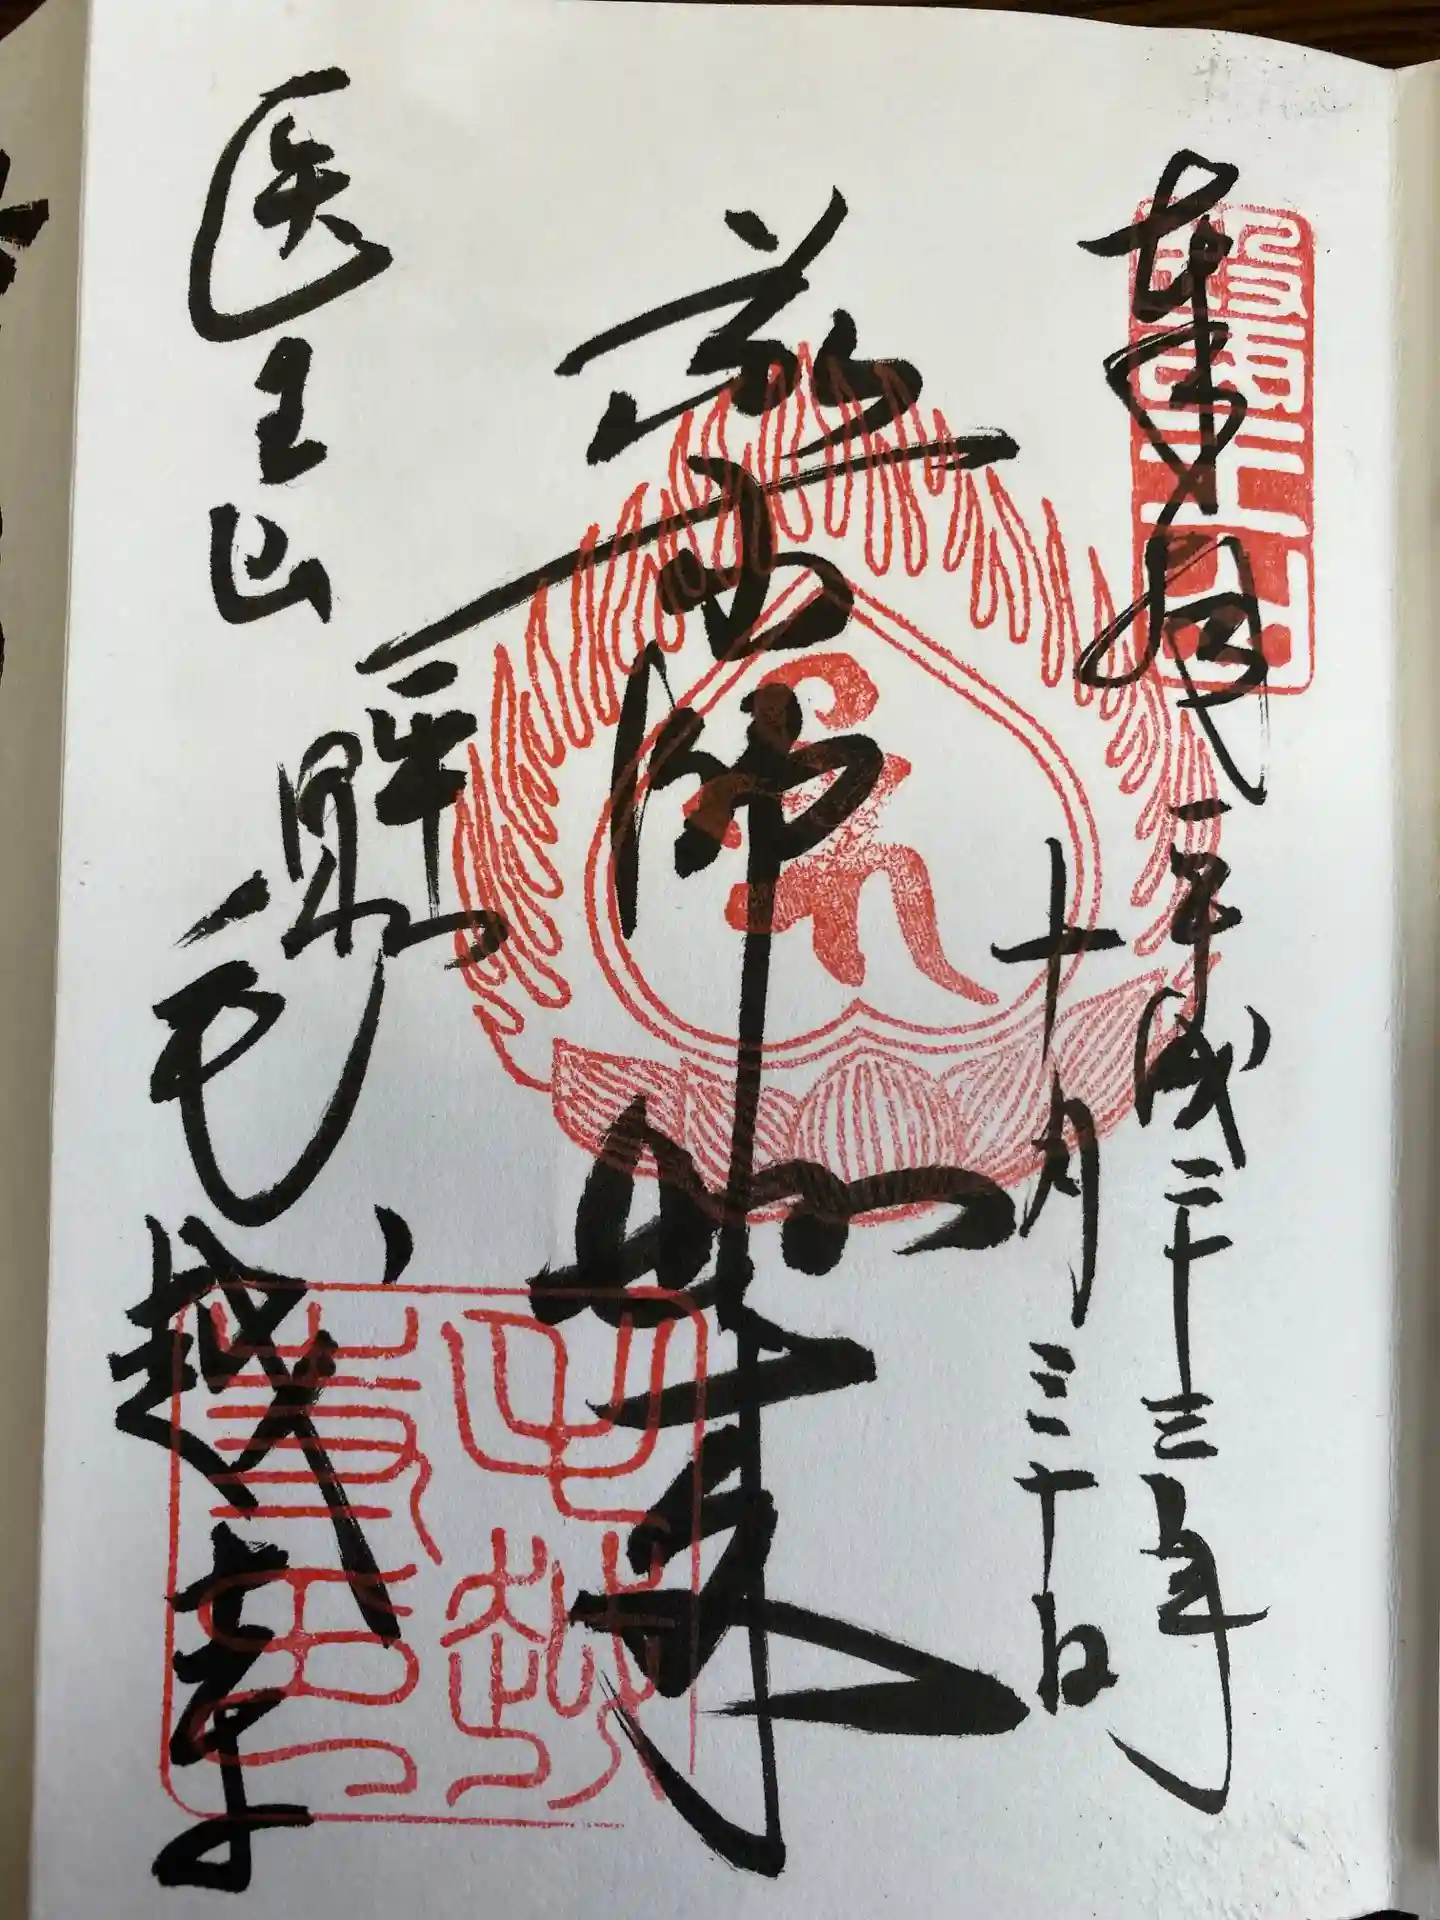 奉拝
平成二十三年
十月三十日
薬師如来
医王山
毛越寺
醫王山
毛越寺印